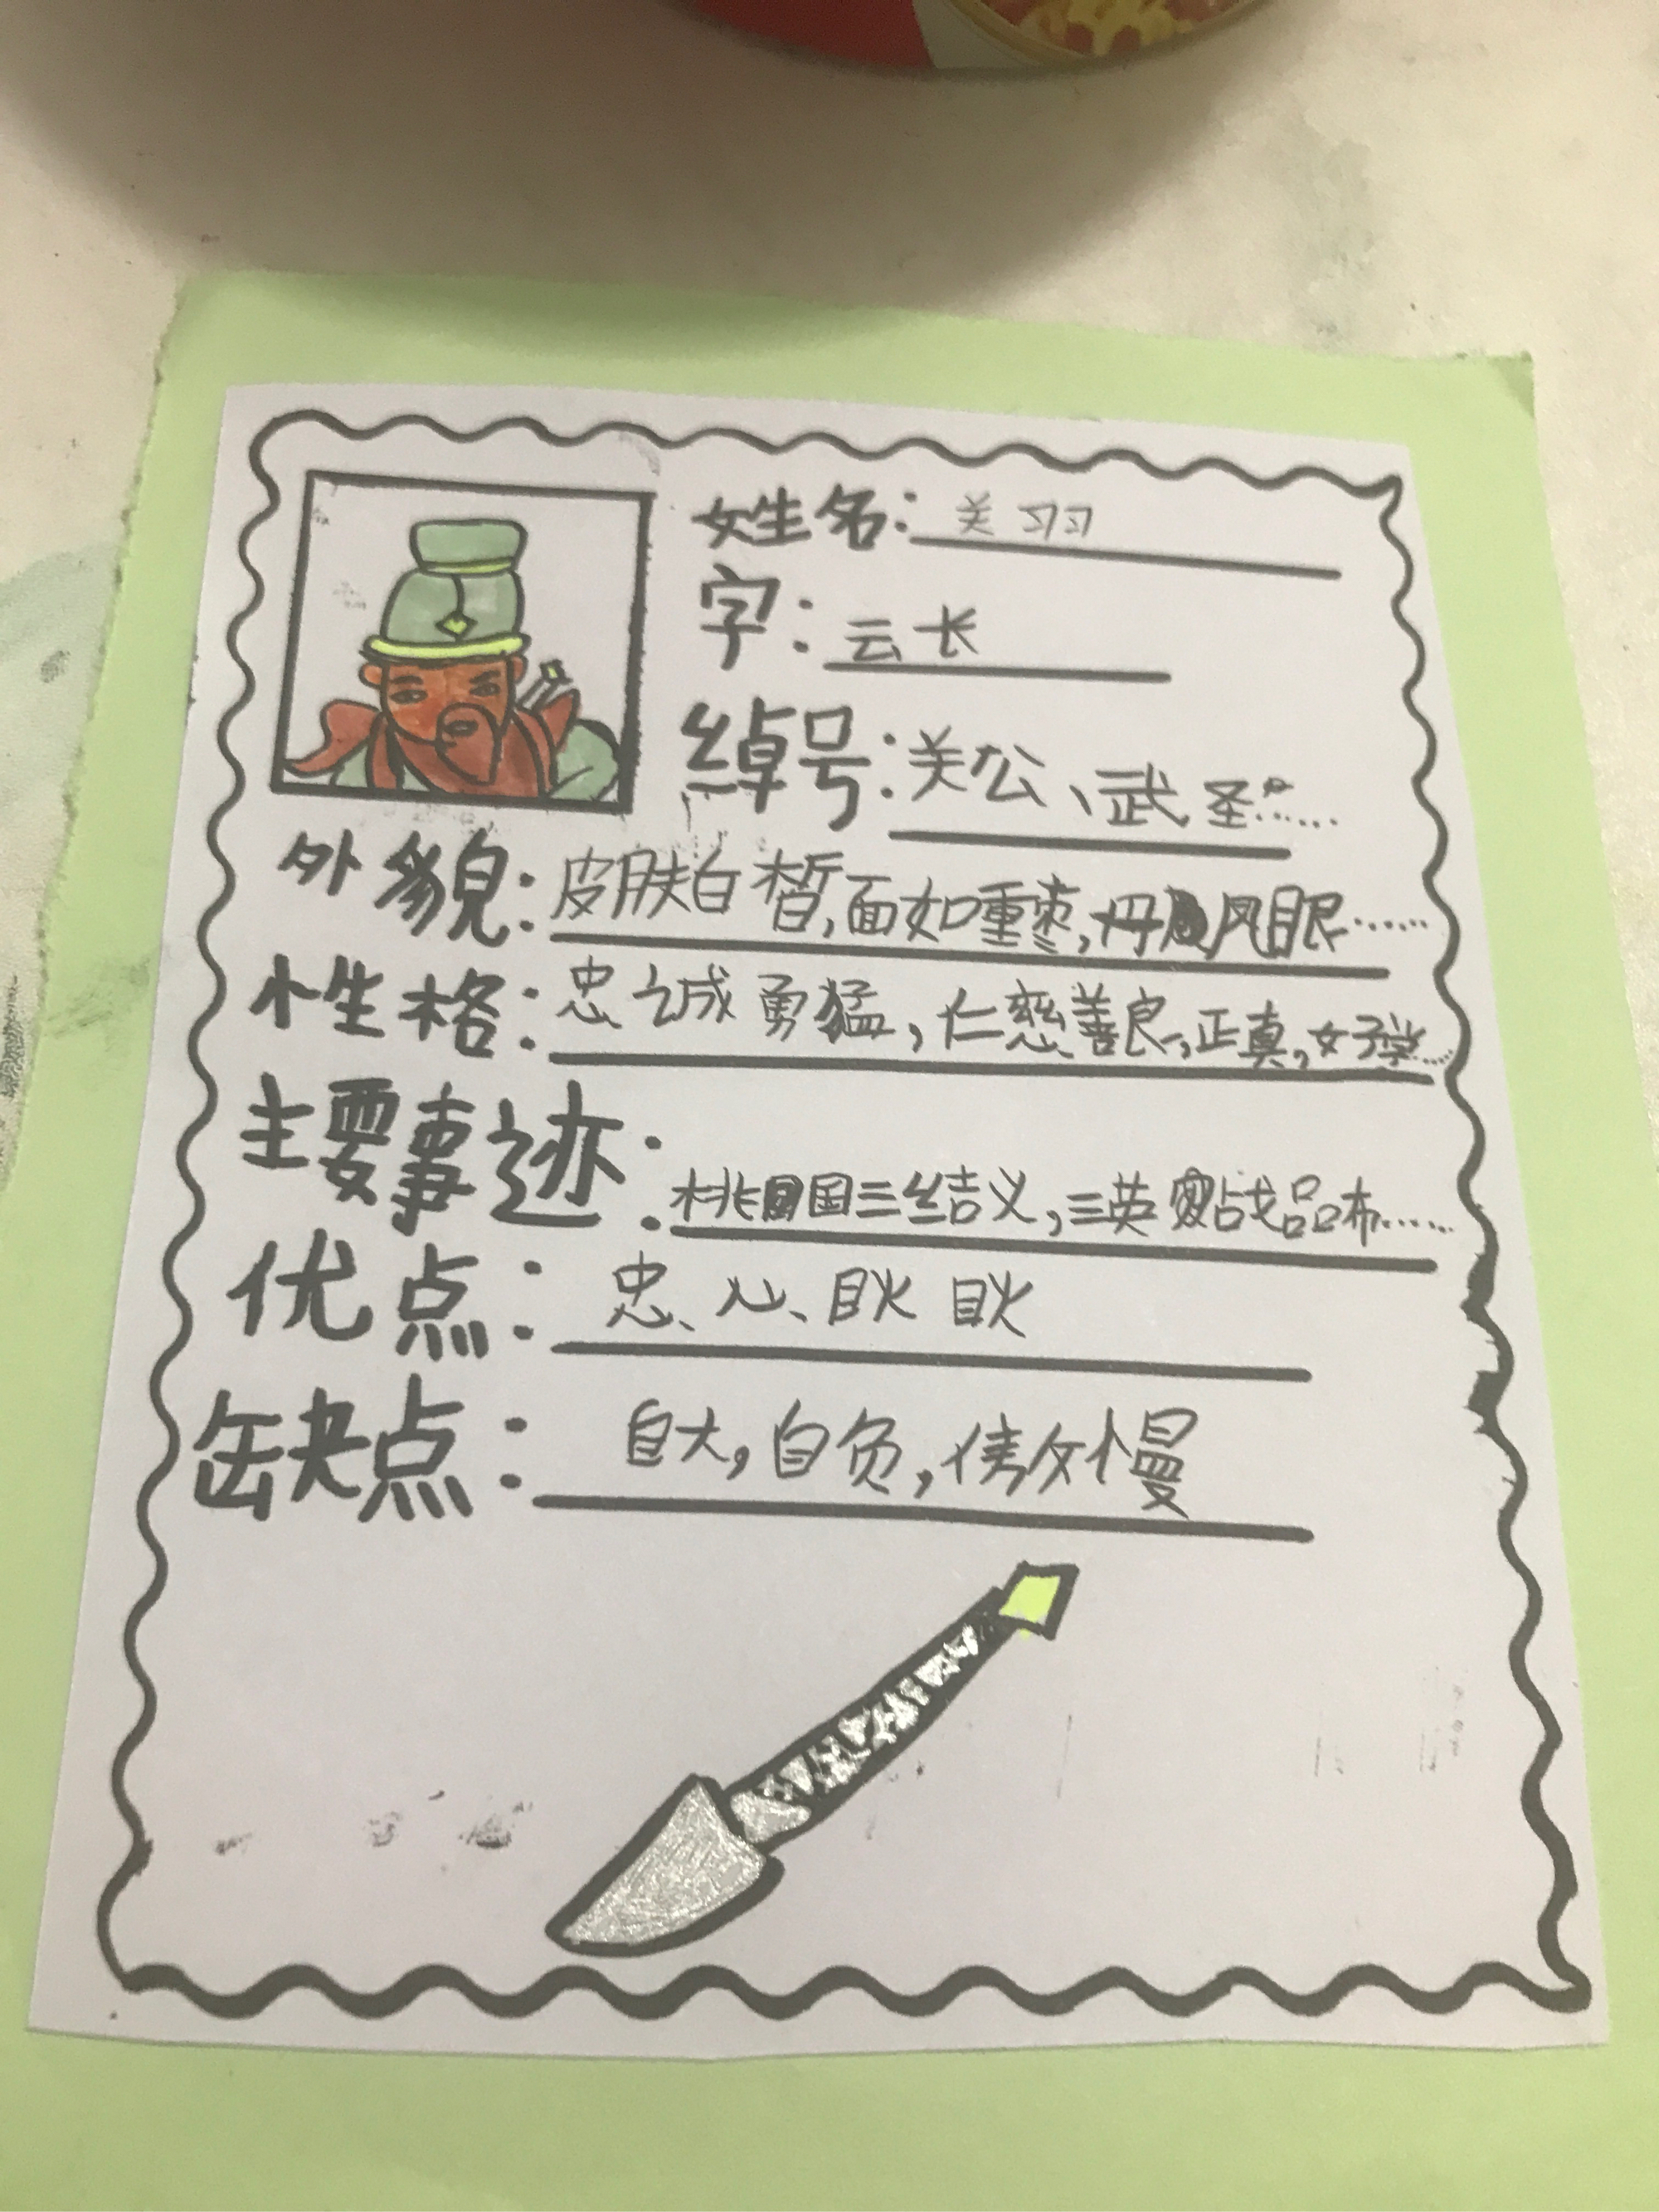 姓名：关羽
字：云长
绰号：关公、武圣……
外貌：皮肤白皙，面如重枣，丹凤眼……
性格：忠诚勇猛，仁慈善良，正真，好学……
主要事迹：桃国三结义，三英战吕布……
优点：忠、心、耿耿
缺点：自大，自负，傲慢